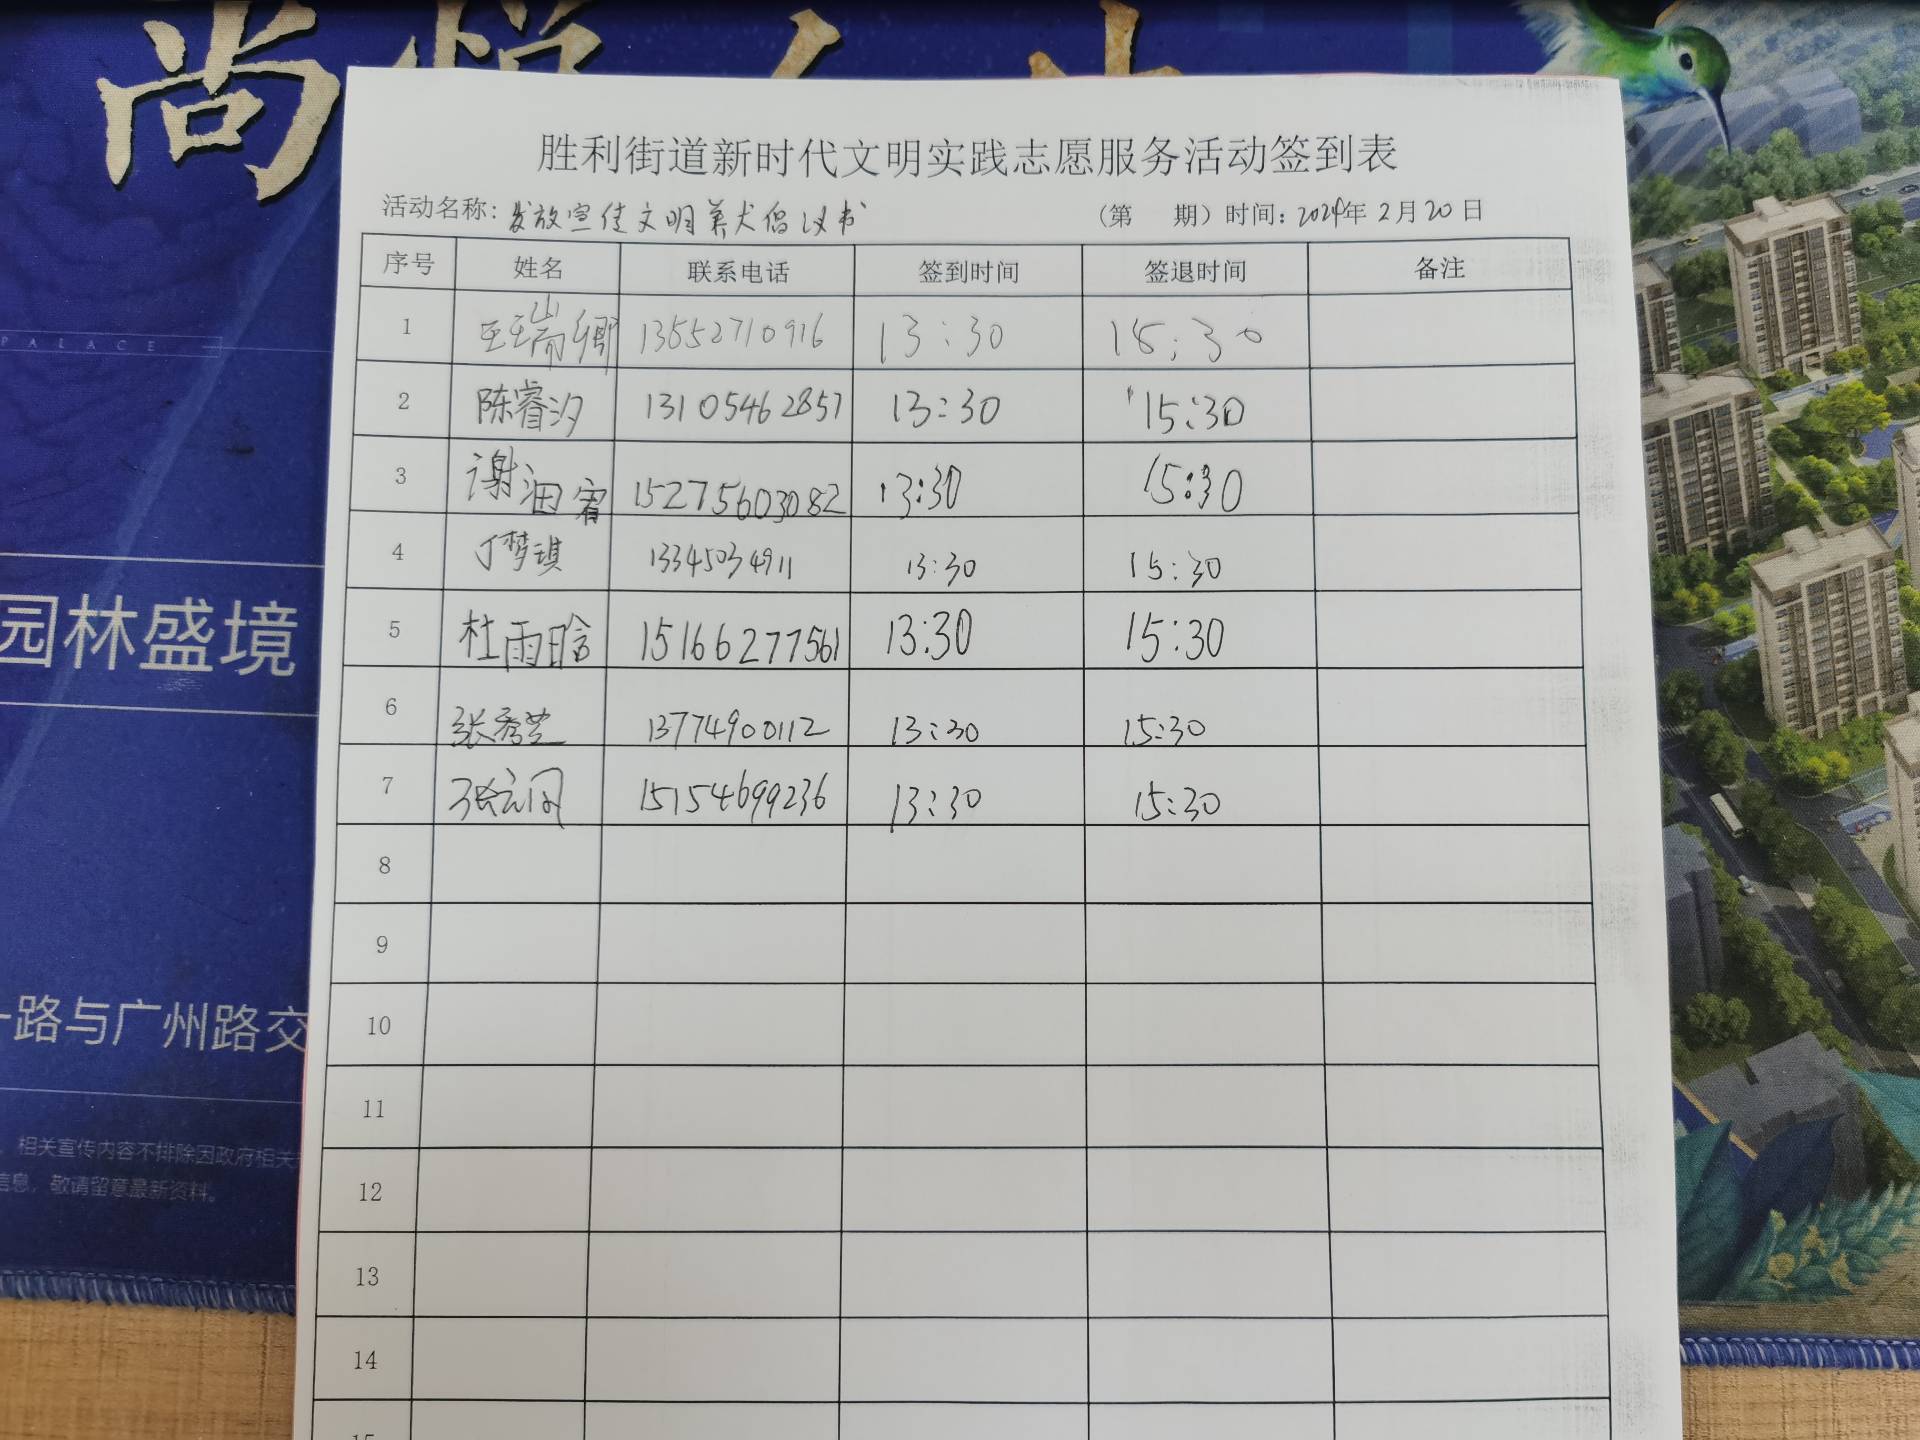 尚悦
PALACE
园林盛境
一路与广州路交
相关宣传内容不排除因政府相关
信息，敬请留意最新资料。
胜利街道新时代文明实践志愿服务活动签到表
活动名称：发放宣传文明养犬倡议书 （第 期）时间：2024年2月20日
序号 姓名 联系电话 签到时间 签退时间 备注
1 王瑞卿 13552710916 13:30 15:30
2 陈睿汐 13105462857 13:30 15:30
3 谢洇宥 15275603082 13:30 15:30
4 丁梦琪 13345034911 13:30 15:30
5 杜雨晗 15166277561 13:30 15:30
6 张秀芝 13774900112 13:30 15:30
7 张 15154699236 13:30 15:30
8
9
10
11
12
13
14
15